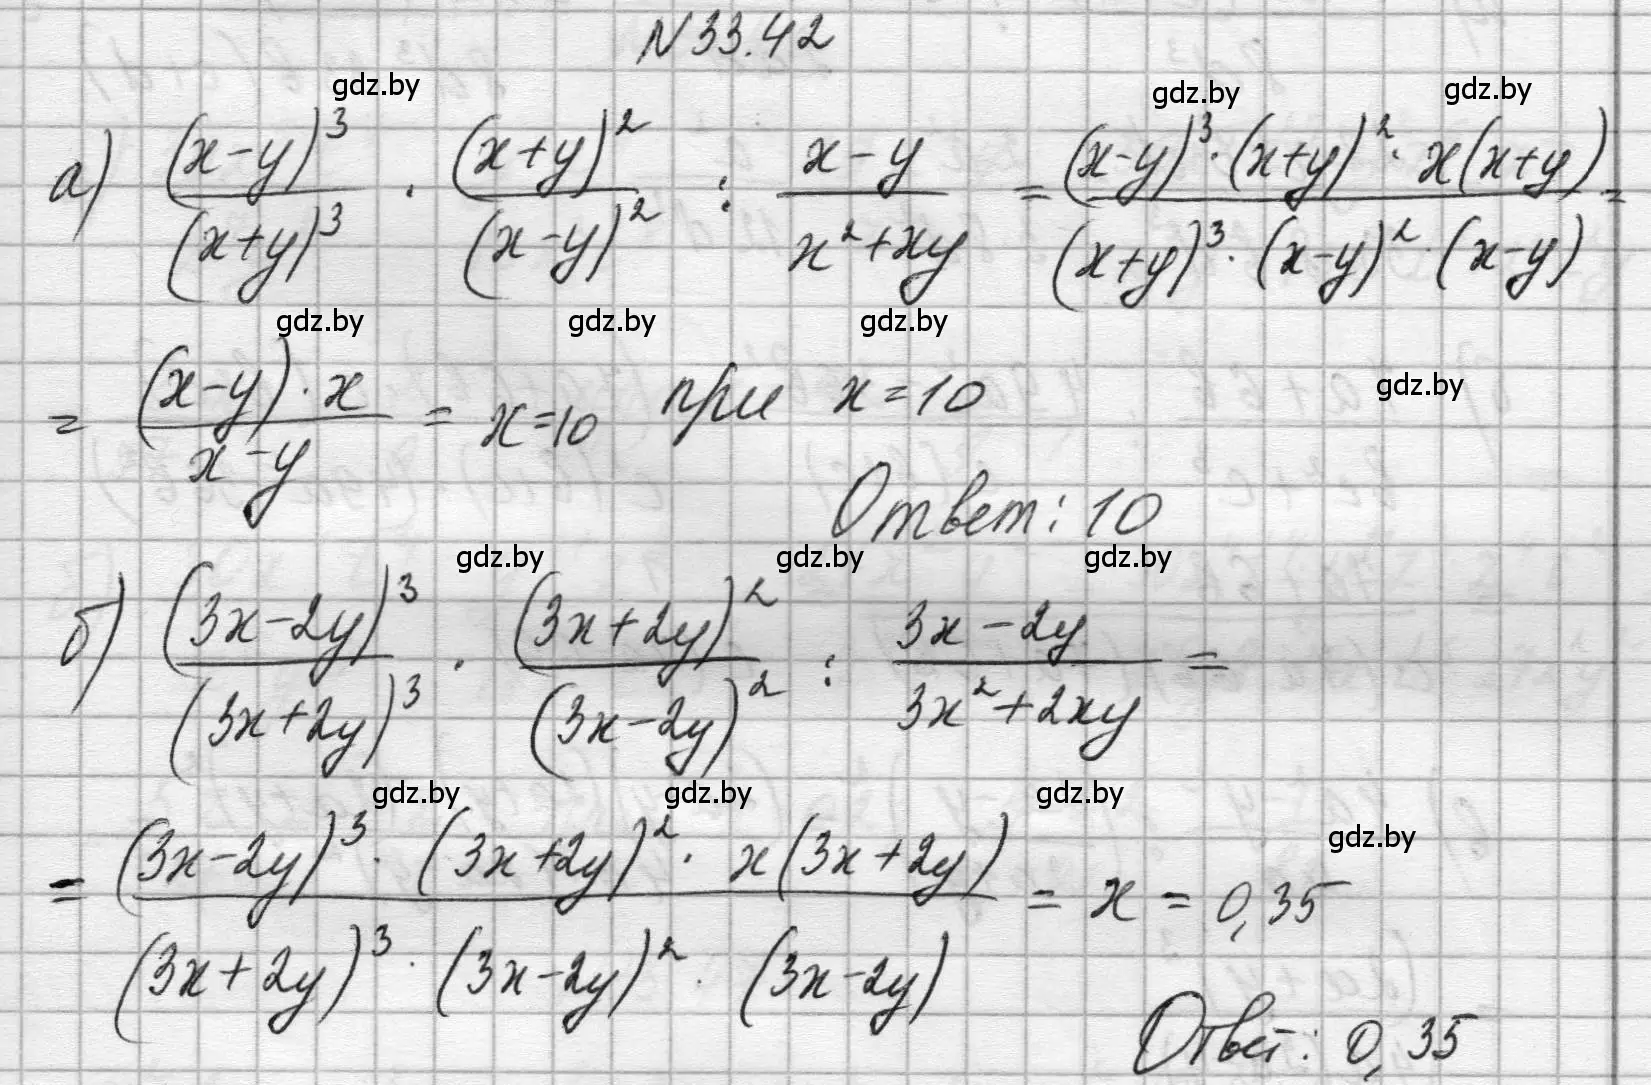 N 33.42
gdz.by gdz.by gdz.by
а) (x-y)³/(x+y)³ · (x+y)²/(x-y)² : (x-y)/(x²+xy) = ((x-y)³·(x+y)²·x(x+y))/((x+y)³·(x-y)²·(x-y)) =
gdz.by gdz.by gdz.by
= ((x-y)·x)/(x-y) = x=10 при x=10
gdz.by
Ответ: 10
gdz.by gdz.by gdz.by
б) (3x-2y)³/(3x+2y)³ · (3x+2y)²/(3x-2y)² : (3x-2y)/(3x²+2xy) =
gdz.by gdz.by gdz.by
gdz.by
= ((3x-2y)³·(3x+2y)²·x(3x+2y))/((3x+2y)³·(3x-2y)²·(3x-2y)) = x = 0,35
Ответ: 0,35